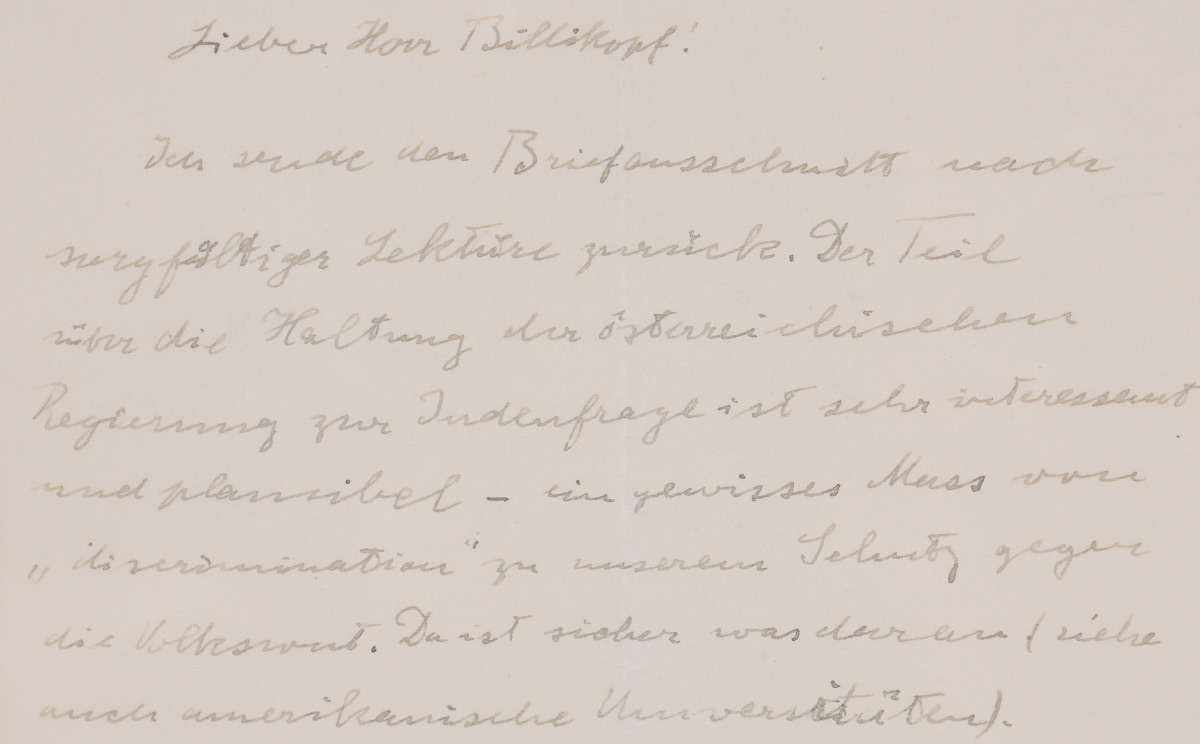 Lieber Herr Billikopf!
Ich sende den Briefausschnitt nach
sorgfältiger Lektüre zurück. Der Teil
über die Haltung der österreichischen
Regierung zur Judenfrage ist sehr interessant
und plausibel – ein gewisses Mass von
„discrimination“ zu unserem Schutz gegen
die Volkswut. Da ist sicher was daran (siehe
auch amerikanische Universitäten).